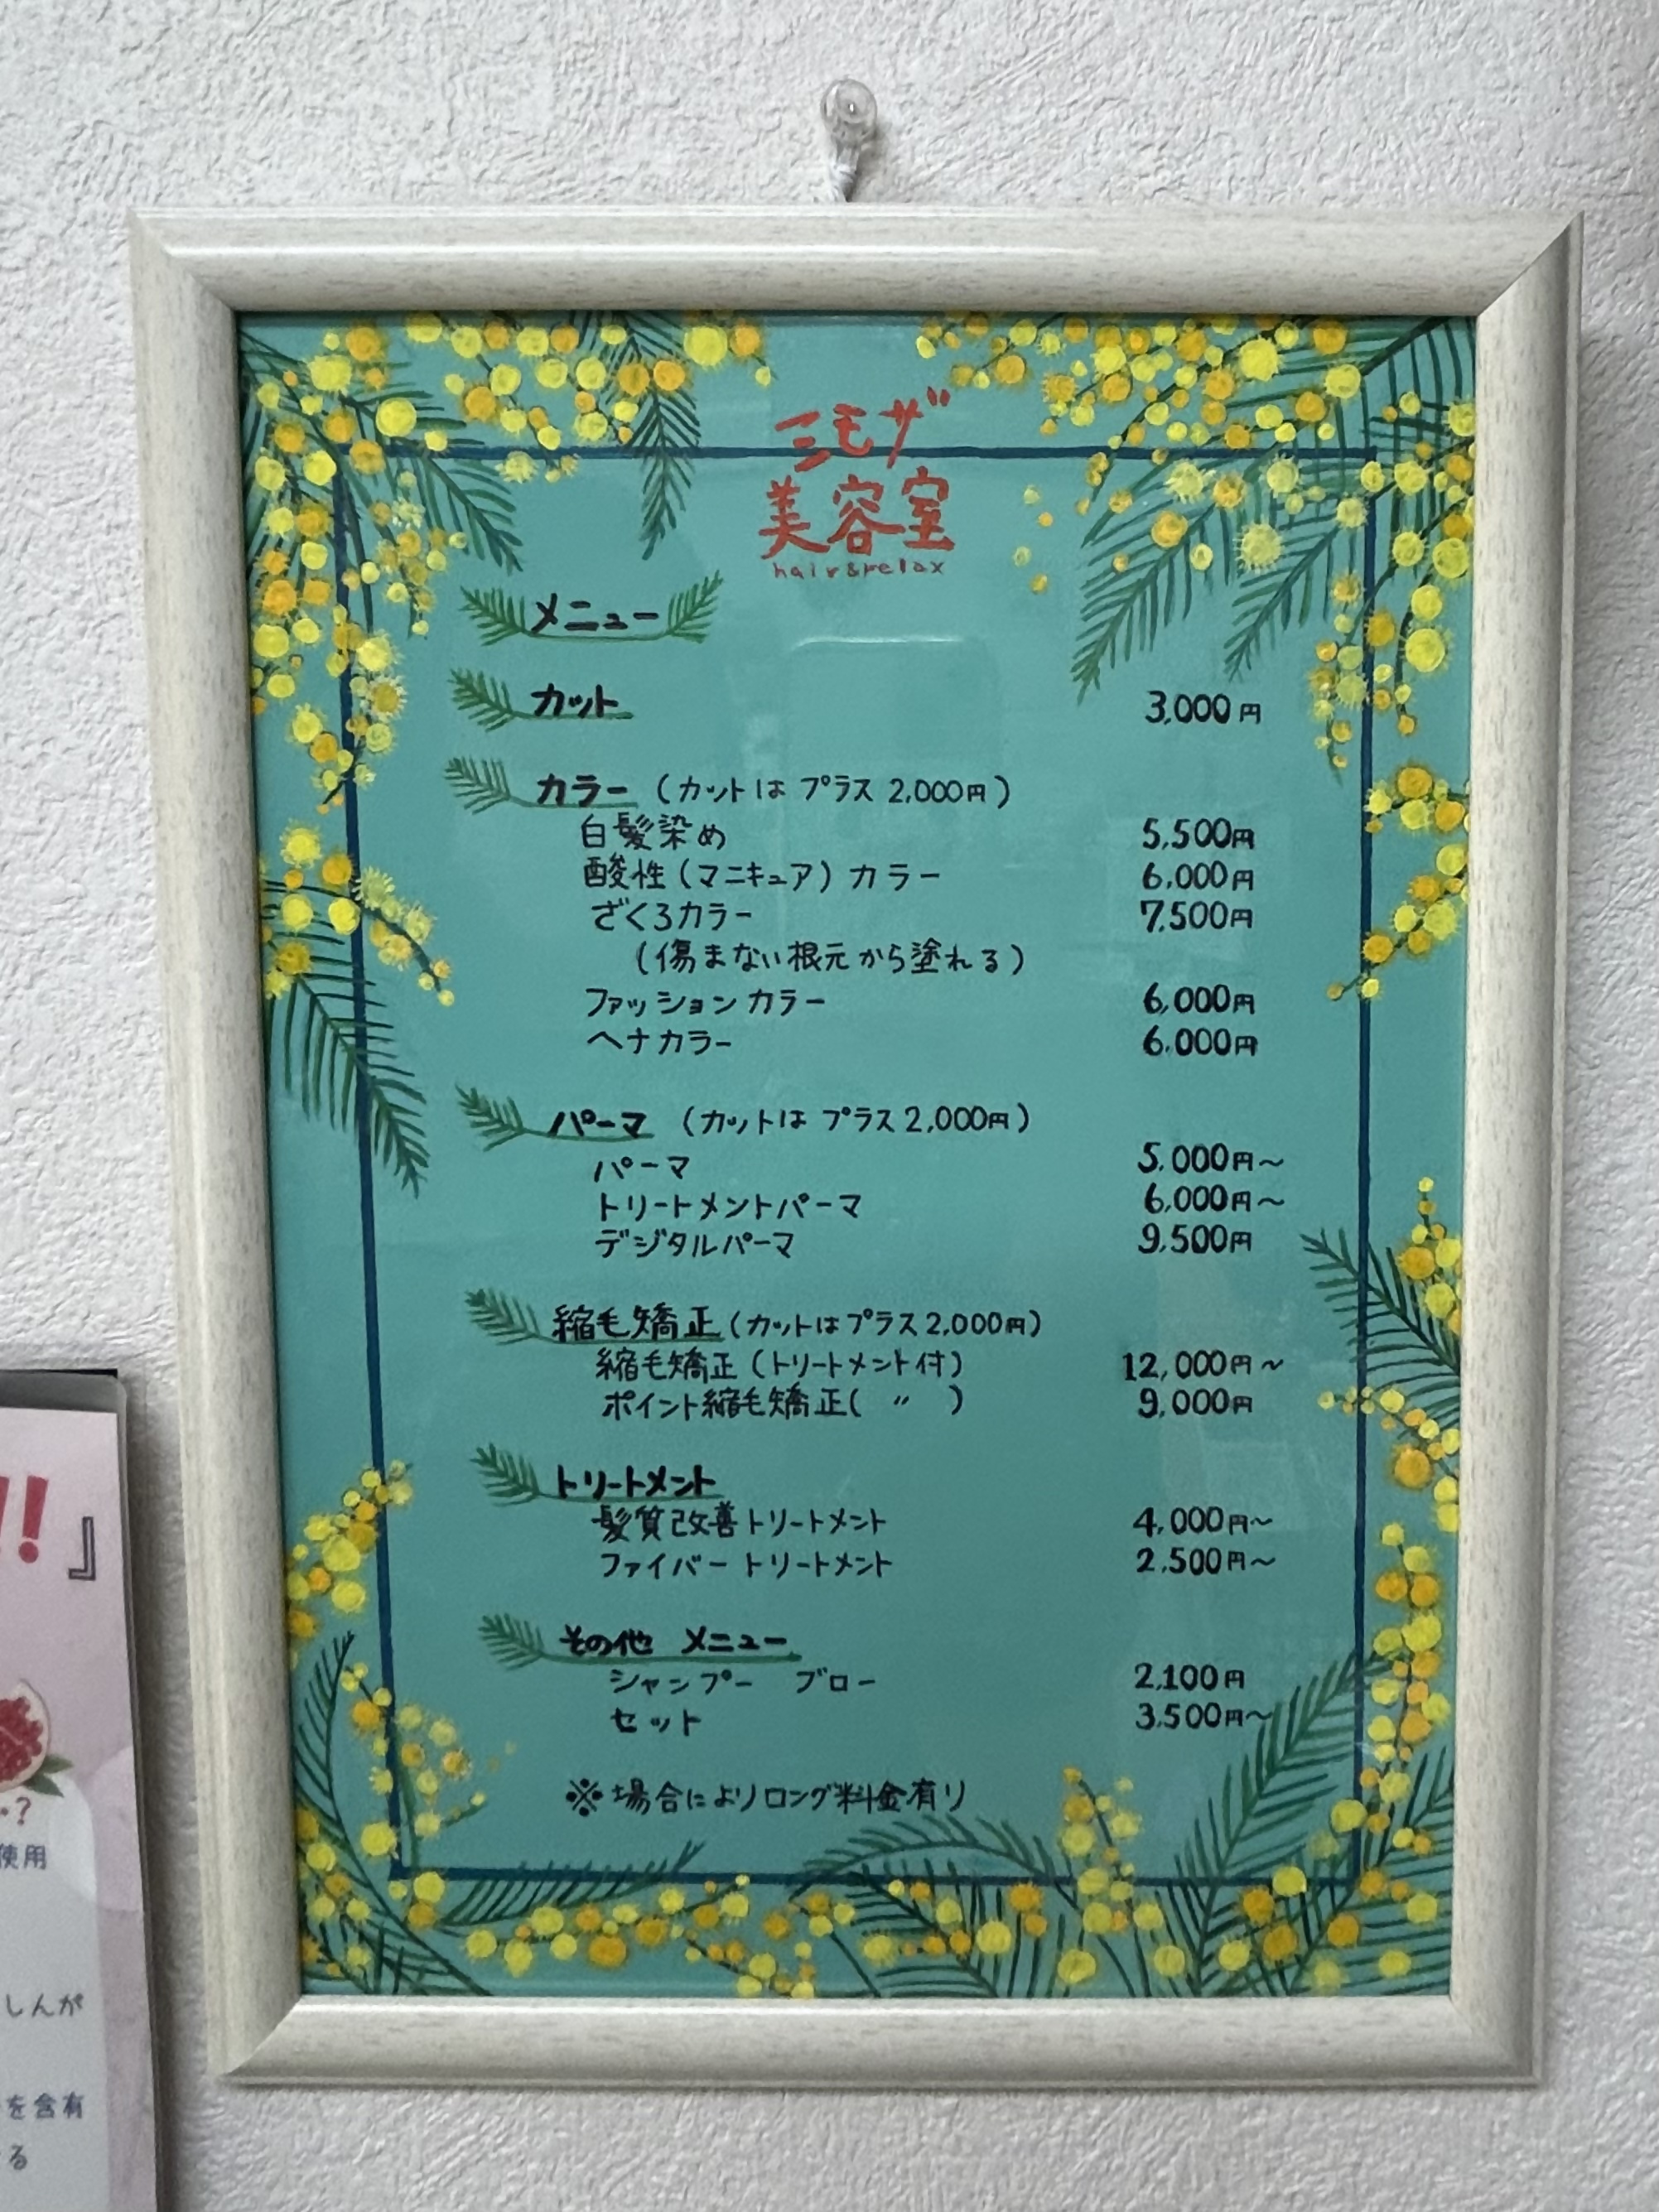 ミモザ
美容室
hair&relax
メニュー
カット 3,000円
カラー (カットは プラス 2,000円)
白髪染め 5,500円
酸性(マニキュア)カラー 6,000円
ざくろカラー 7,500円
(傷まない根元から塗れる)
ファッションカラー 6,000円
ヘナカラー 6,000円
パーマ (カットは プラス 2,000円)
パーマ 5,000円~
トリートメントパーマ 6,000円~
デジタルパーマ 9,500円
縮毛矯正(カットはプラス2,000円)
縮毛矯正(トリートメント付) 12,000円~
ポイント縮毛矯正( 〃 ) 9,000円
トリートメント
髪質改善トリートメント 4,000円~
ファイバートリートメント 2,500円~
その他 メニュー
シャンプー ブロー 2,100円
セット 3,500円~
※場合によりロング料金有り
!!』
?
使用
しんが
を含有
る